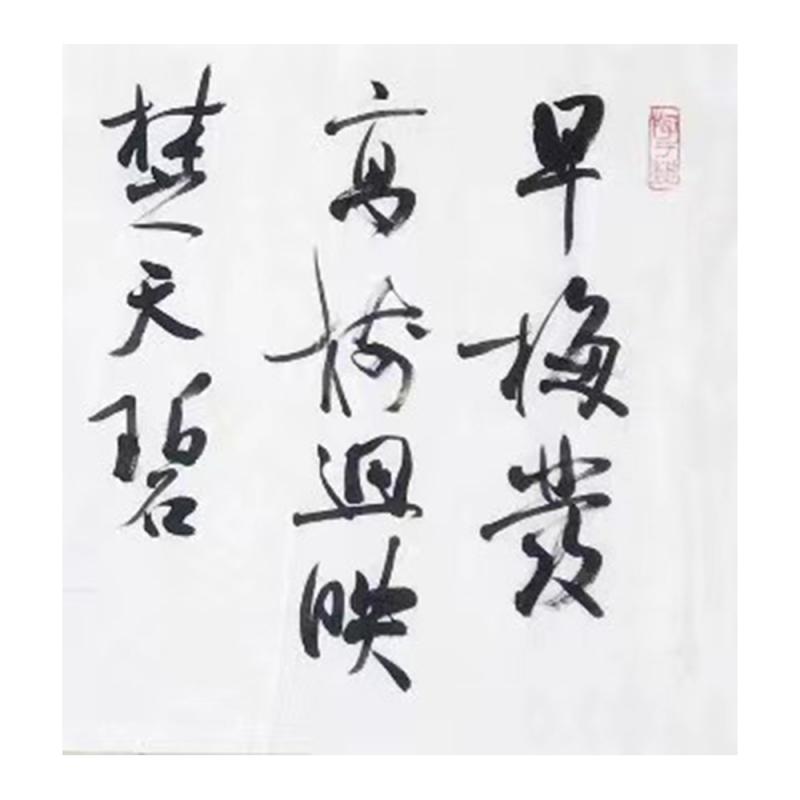 早梅發
高樹迥映
楚天碧